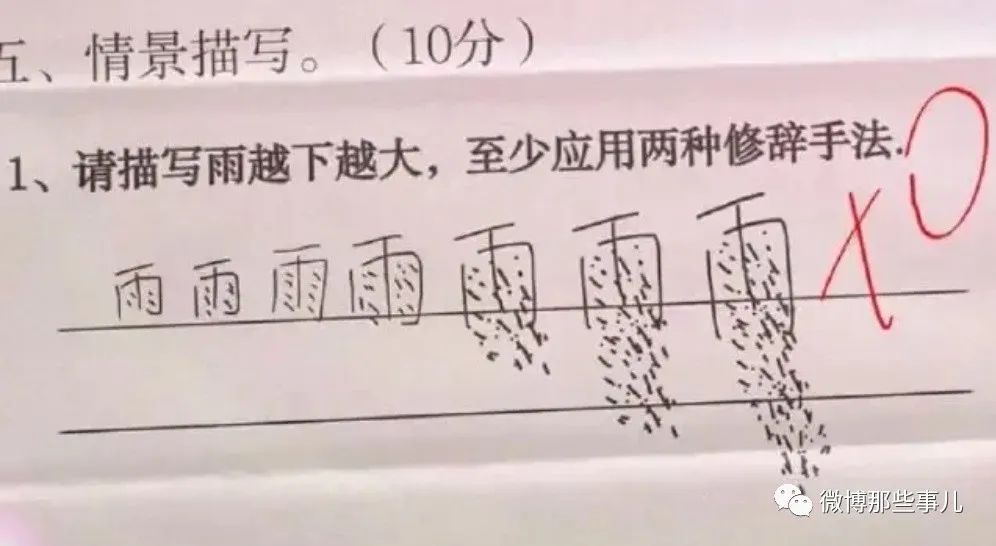 五、情景描写。（10分）
1、请描写雨越下越大，至少应用两种修辞手法.
雨雨雨雨雨雨雨 x0
微博那些事儿